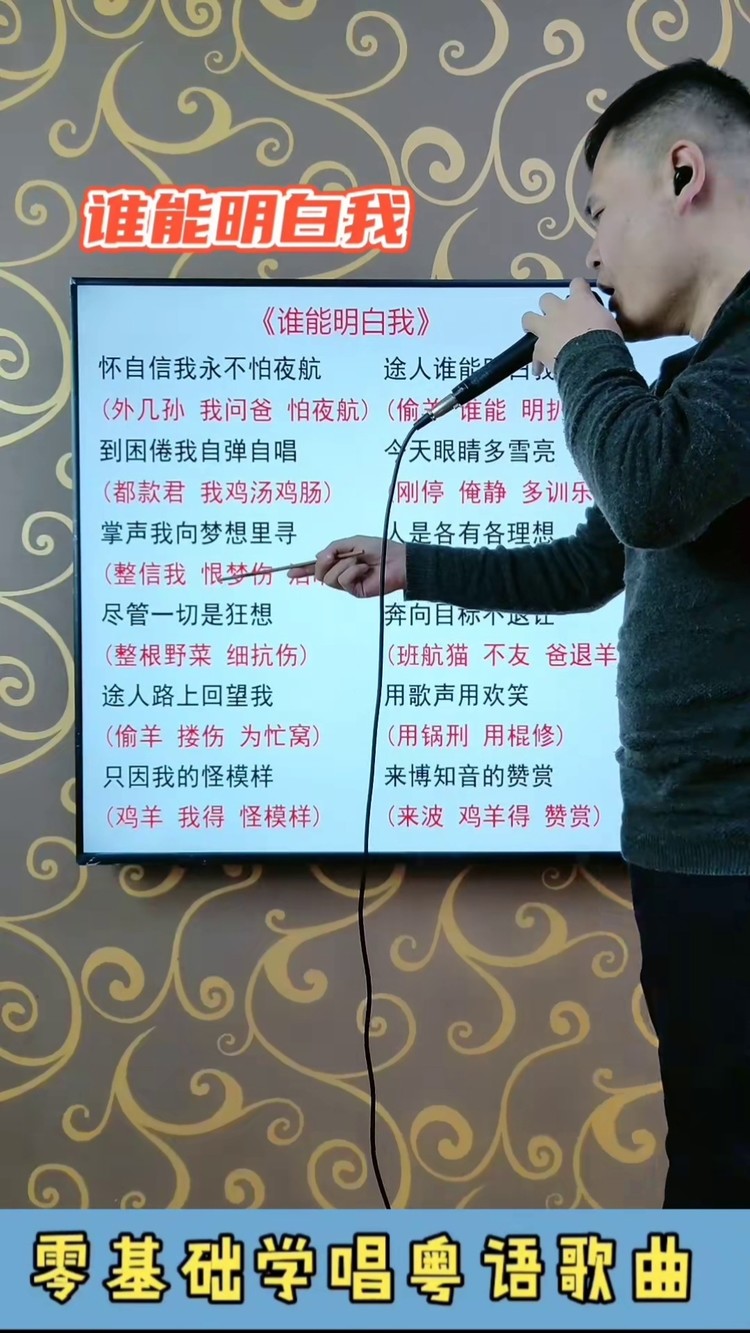 谁能明白我
《谁能明白我》
怀自信我永不怕夜航
(外几孙 我问爸 怕夜航)
到困倦我自弹自唱
(都款君 我鸡汤鸡肠)
掌声我向梦想里寻
(整信我 恨梦伤
尽管一切是狂想
(整根野菜 细抗伤)
途人路上回望我
(偷羊 搂伤 为忙窝)
只因我的怪模样
(鸡羊 我得 怪模样)
途人谁能明白我
(偷羊 谁能 明扒
今天眼睛多雪亮
(刚停 俺静 多训乐
人是各有各理想
奔向目标不退让
(班航猫 不友 爸退羊
用歌声用欢笑
(用锅刑 用棍修)
来博知音的赞赏
(来波 鸡羊得 赞赏)
零基础学唱粤语歌曲